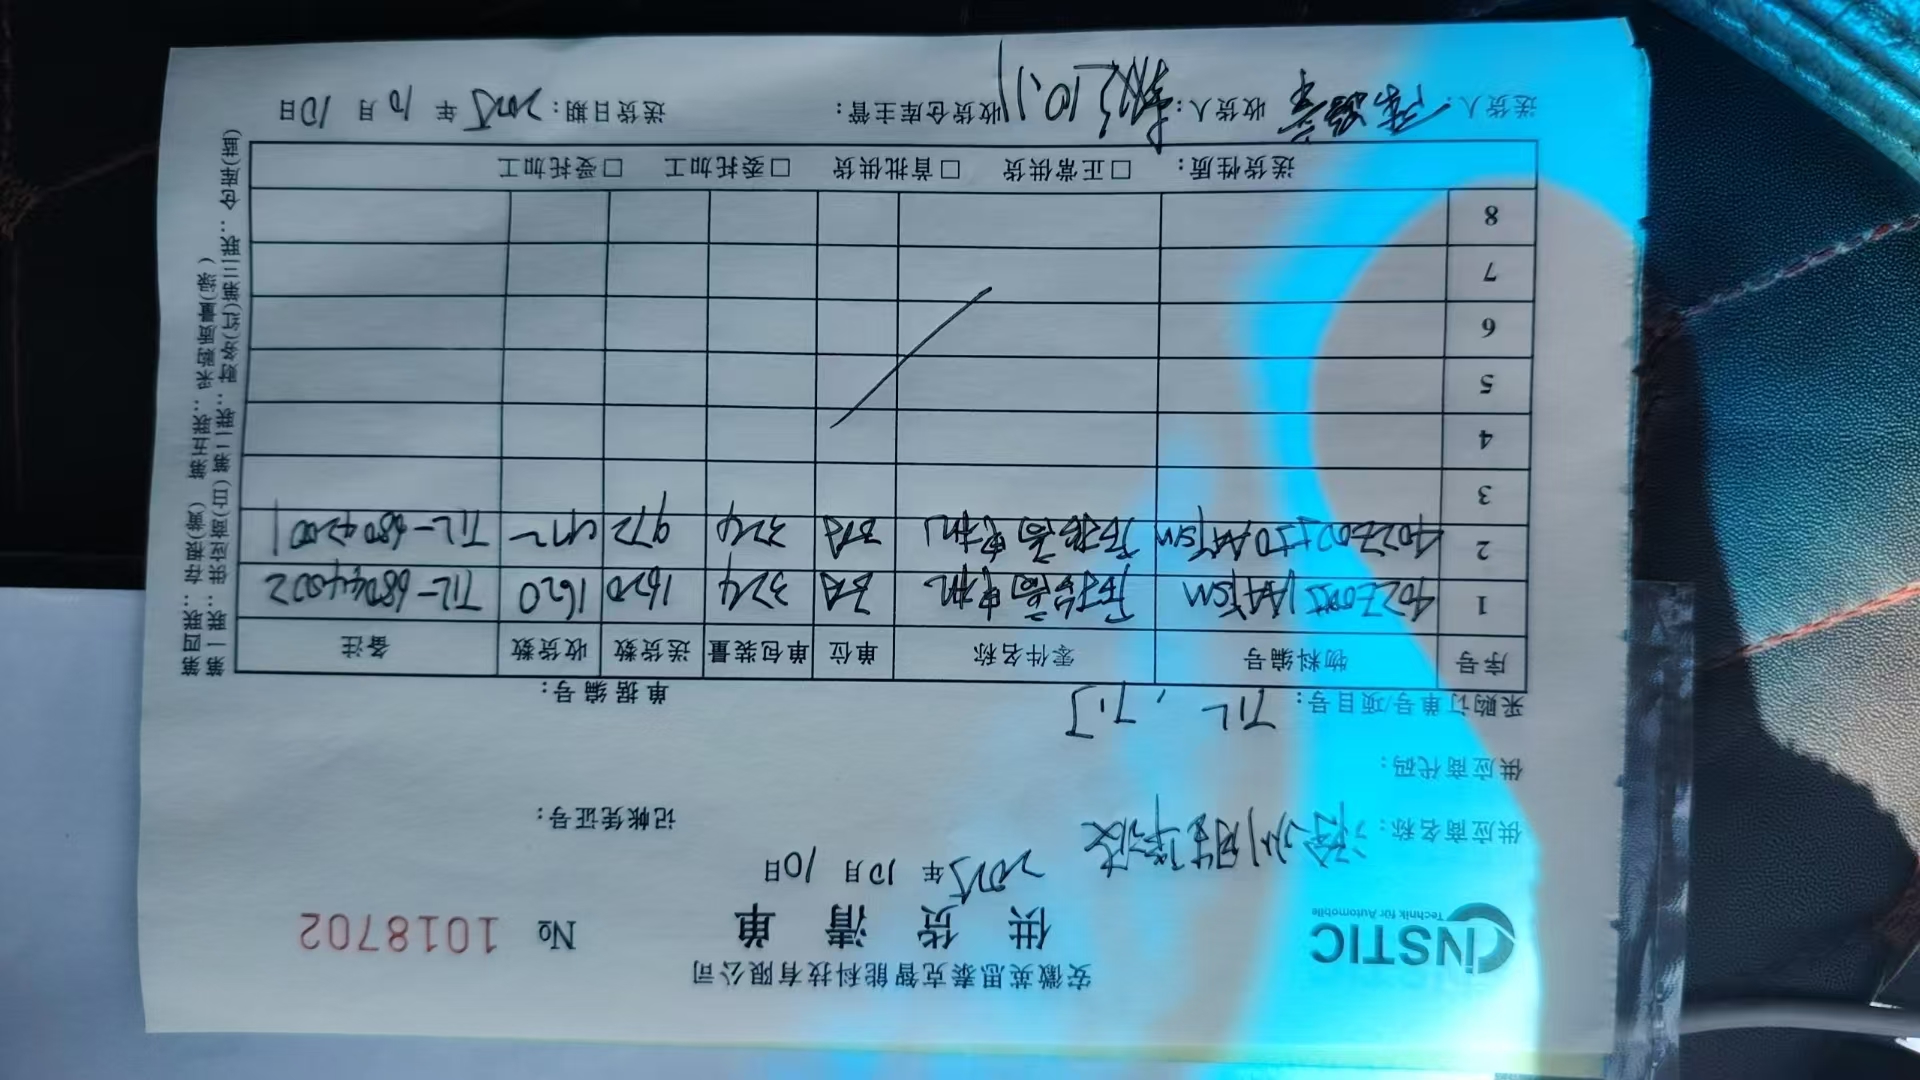 INSTIC
Technik für Automobile
安徽英思泰克智能科技有限公司
供货清单
№ 1018702
2025年10月10日
供应商名称:
记帐凭证号:
供应商代码:
采购订单号/项目号: T1L, T1J
单据编号:
序号 物料编号 零件名称 单位 单包装量 送货数 收货数 备注
1 后抬高电机 324 1620 1620 T1L-68044002
2 后抬高电机 324 972 972 T1L-68042001
3
4
5
6
7
8
送货性质: □正常供货 □首批供货 □委托加工 □受托加工
送货人: 收货人: 10.11 收货仓库主管: 送货日期: 2025年10月10日
第一联:供应商(白) 第二联:财务(红) 第三联:仓库(蓝)
第四联:存根(黄) 第五联:采购质量(绿)